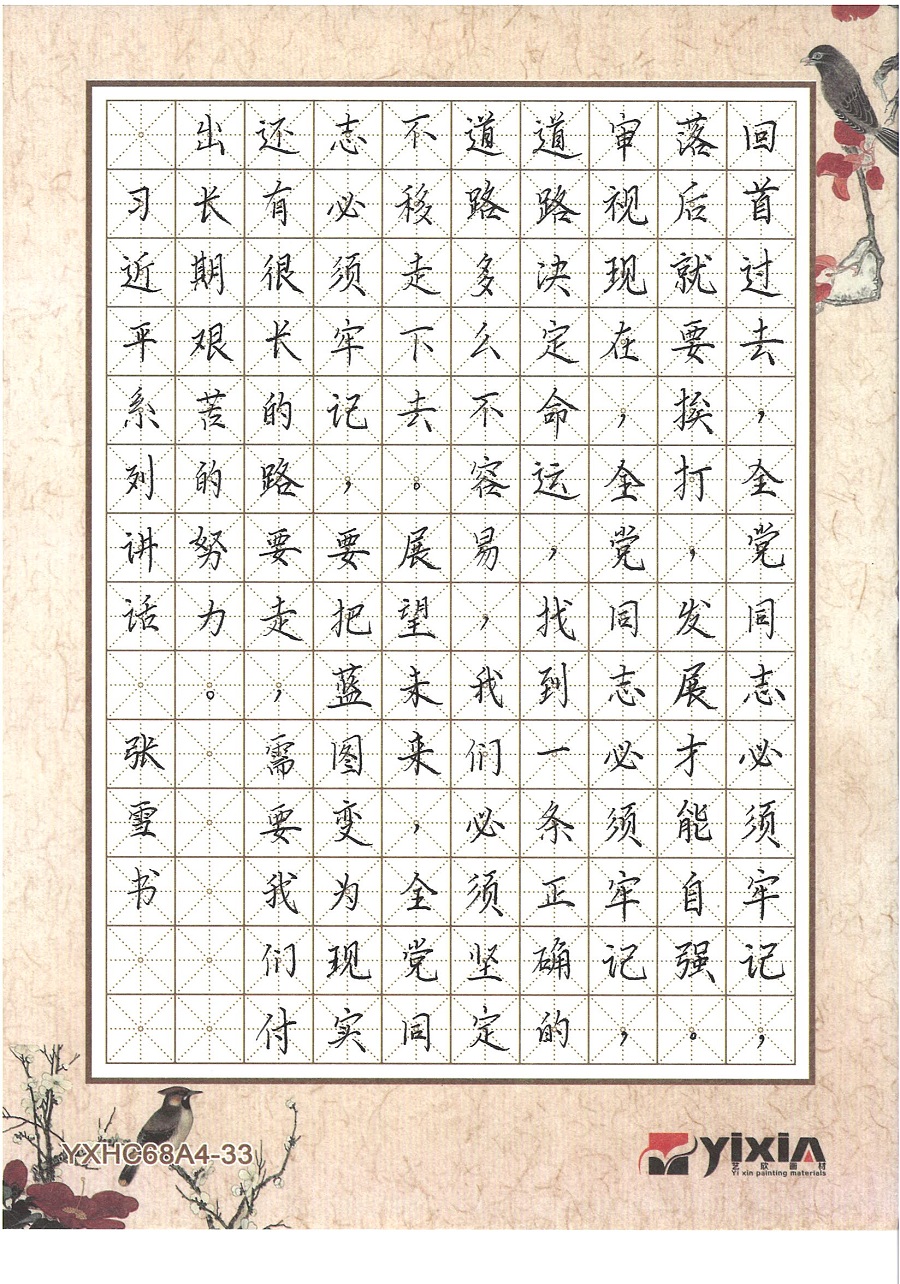 回首过去，全党同志必须牢记，
落后就要挨打，发展才能自强。
审视现在，全党同志必须牢记，
道路决定命运，找到一条正确的
道路多么不容易，我们必须坚定
不移走下去。展望未来，全党同
志必须牢记，要把蓝图变为现实
还有很长的路要走，需要我们付
出长期艰苦的努力。
习近平系列讲话 张雪书
YXHC68A4-33
yixin
艺欣画材
Yi xin painting materials